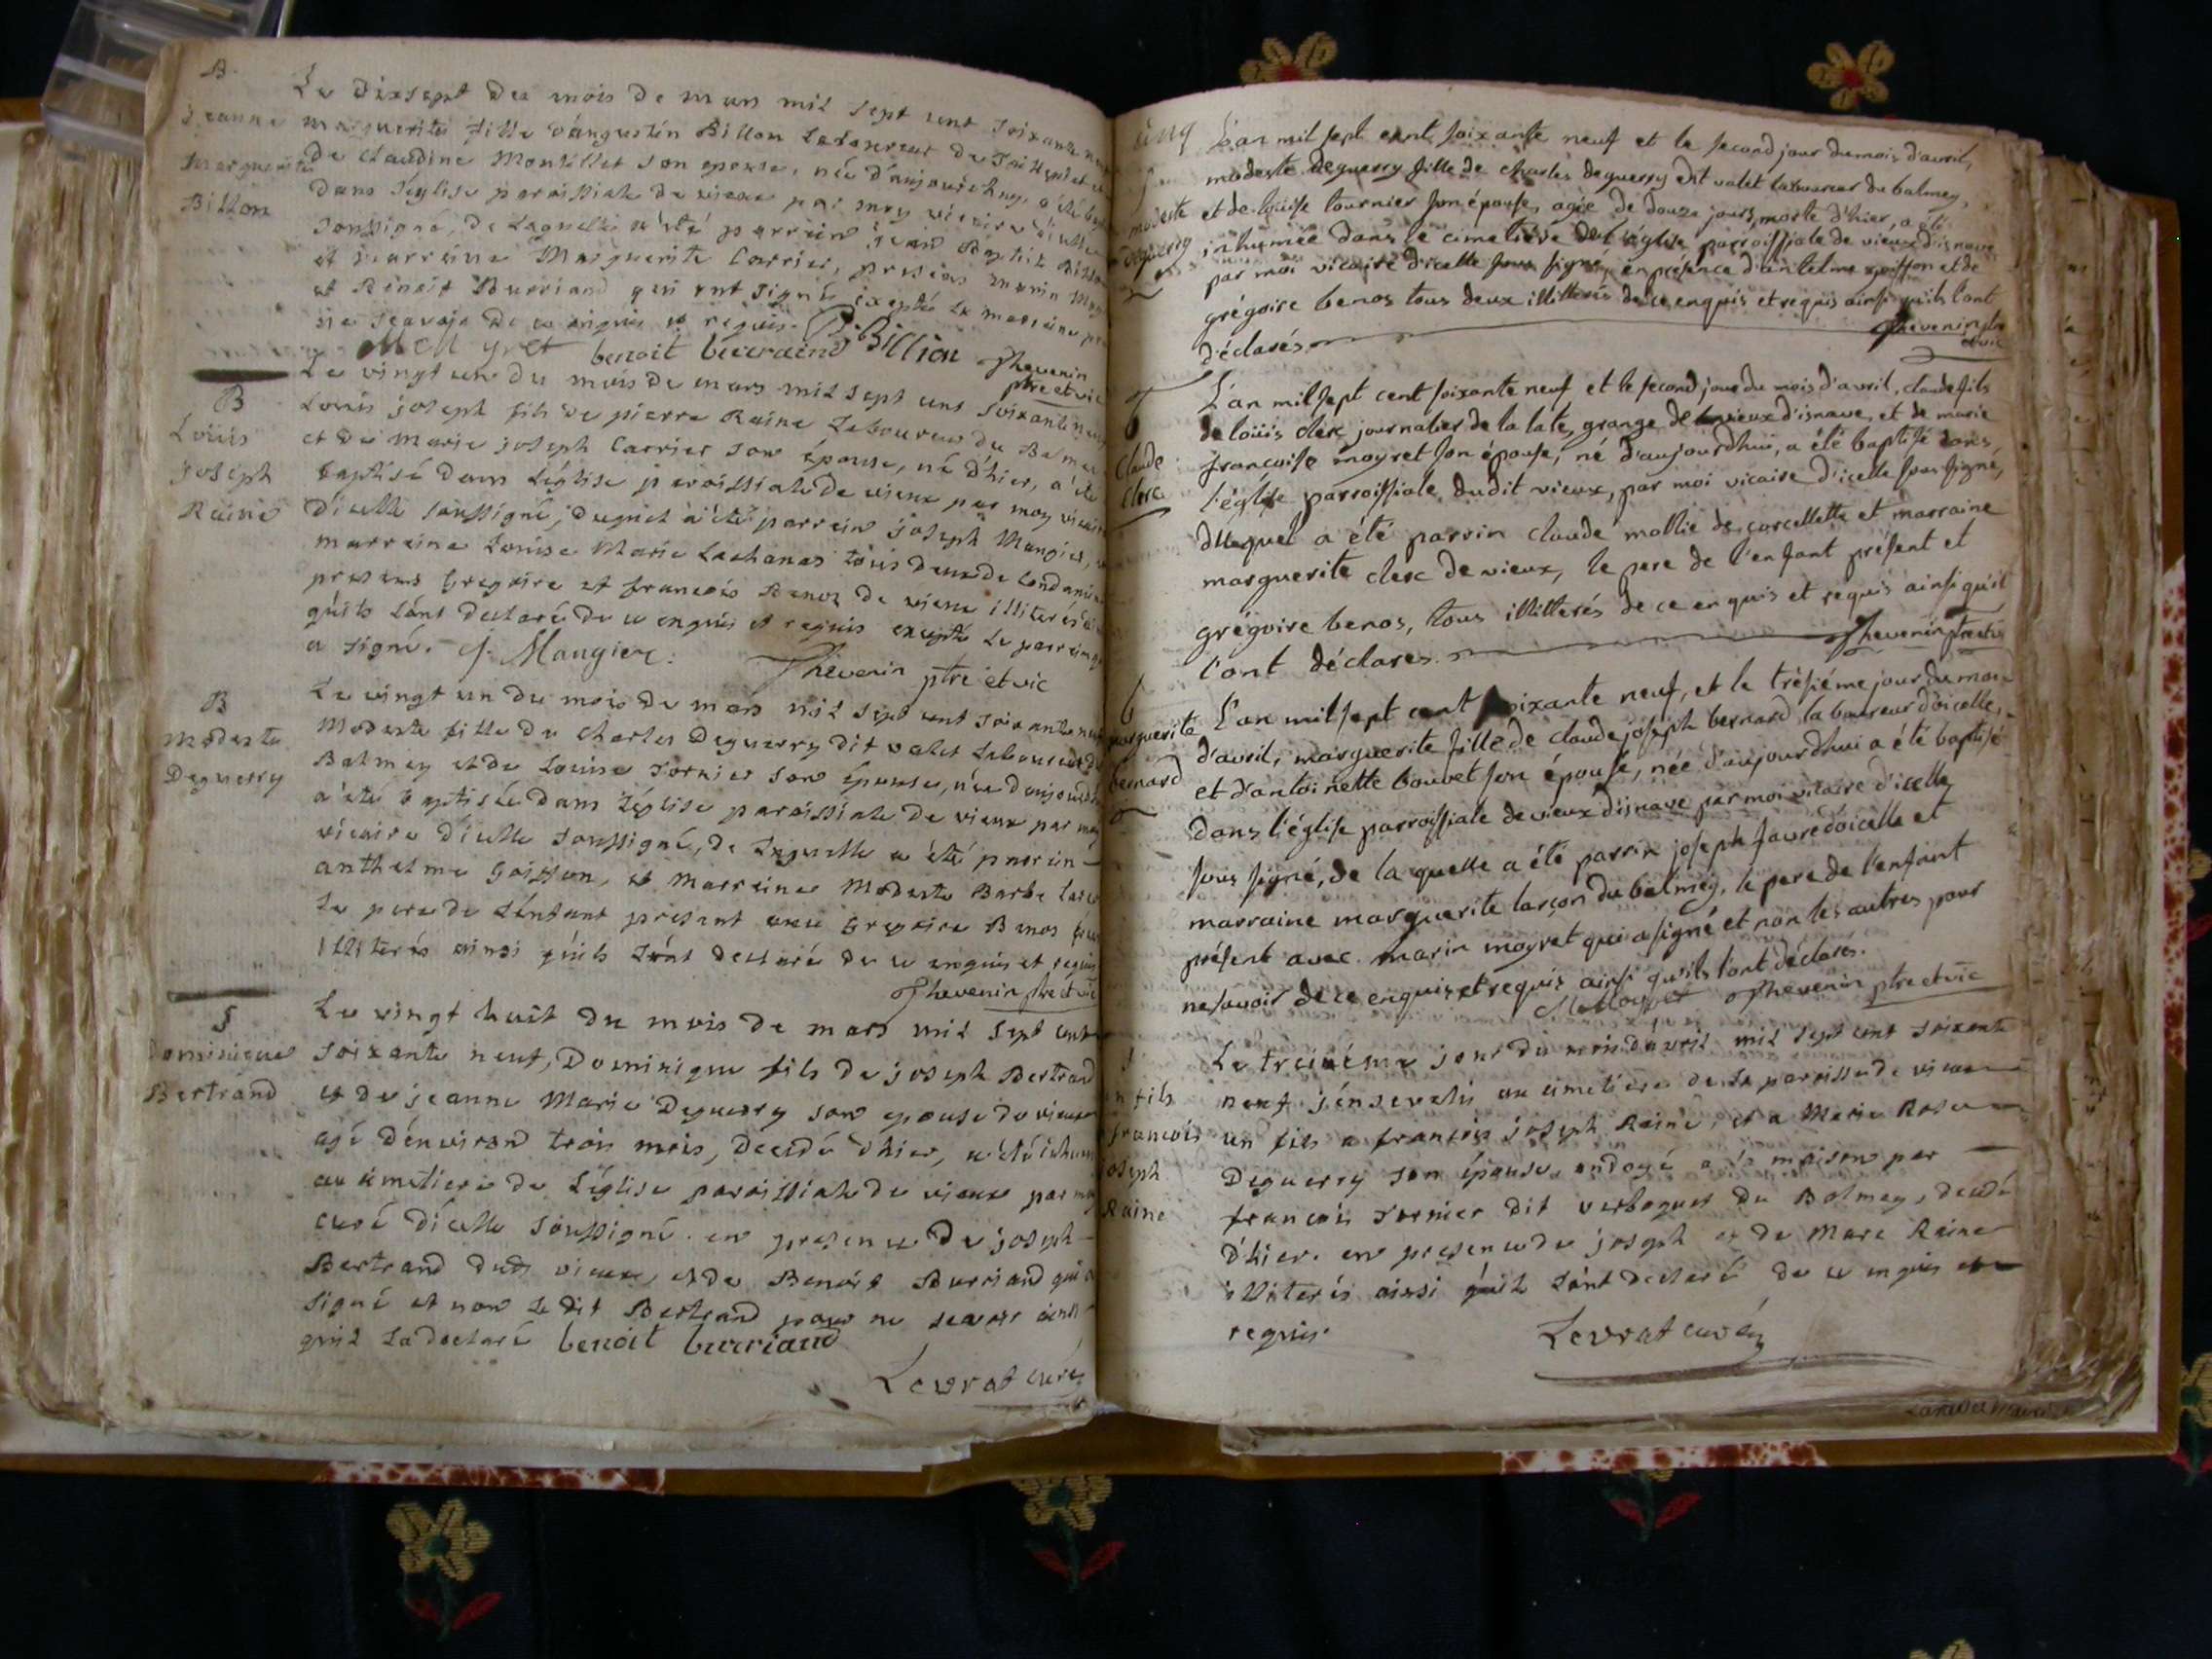 B.
Jeanne
Marguerite
Billon
Le dixsept du mois de mars mil sept cent soixante neuf
marguerite fille d'augustin Billon Laboureur de
de claudine Montillet son epouse, née d'aujourdhuy, a été
dans l'eglise paroissiale de vieux par moy vicaire d'icelle
soussigné, de Laquelle a été parrain jean Baptiste Billon
et marraine Marguerite Carrier, présens marin
et Benoit Burriand qui ont signé excepté La marraine
ne scavoir de ce enquis et requis. B. Billion
benoit beurriand Thevenin
ptre et vic
B
Loüis
joseph
Raine
Le vingt un du mois de mars mil sept cent soixante neuf
Loüis joseph fils de pierre Raine Laboureur du Balmey
et de Marie joseph Carrier son épouse, né d'hier, a été
baptisé dans L'église paroissiale de vieux par moy vicaire
d'icelle soussigné, duquel a été parrain joseph Mangier,
marraine Louise Marie Lachanas tous deux de
presens Gregoire et francois Benoz de vieux illiterés
qu'ils L'ont declaré de ce enquis et requis excepté Le parrain
a signé. J. Maugier.
Thevenin ptre et vic
B
Modeste
Deguerry
Le vingt un du mois de mars mil sept cent soixante neuf
Modeste fille de Charles Deguerry dit valet Laboureur du
Balmey et de Louise Tornier son épouse, née d'aujourdhuy
a été baptisée dans L'église paroissiale de vieux par moy
vicaire d'icelle soussigné, de Laquelle a été parrin
anthelme Goisson, et Marraine Modeste Barbe
Le pere de L'enfant présent avec Gregoire Benos
illiterés ainsi qu'ils L'ont declaré de ce enquis et requis
Thevenin ptre et vic
S
Dominique
Bertrand
Le vingt huit du mois de mars mil sept cent
soixante neuf, Dominique fils de joseph Bertrand
et de jeanne Marie Deguerry son epouse de vieux
agé d'environ trois mois, decedé d'hier, a été inhumé
au cimetiere de L'église paroissiale de vieux par moy
curé d'icelle soussigné. en presence de joseph
Bertrand dudt vieux, et de Benoist Burriand qui a
signé et non Le dit Bertrand pour ne scavoir ainsi
qu'il L'a declaré benoit beurriand
Levrat curé
modeste
deguerry
L'an mil sept cent soixante neuf et le second jour du mois d'avril,
modeste deguerry fille de charles deguerry dit valet laboureur du balmey,
et de loüise tournier son épouse, agée de douze jours, morte d'hier, a été
inhumée dans le cimetière de l'église parroissiale de vieux d'isnave
par moi vicaire d'icelle sous signé, en présence d'antelme goisson et de
grégoire benos tous deux illitterés de ce enquis et requis ainsi qu'ils l'ont
déclarés Thevenin ptre
et vic
b
Claude
Clerc
L'an mil sept cent soixante neuf, et le second jour du mois d'avril, claude fils
de loüis clerc journalier de la late, grange de vieux d'isnave, et de marie
francoise moyret son épouse, né d'aujourdhui, a été baptisé dans
l'église parroissiale dudit vieux, par moi vicaire d'icelle sous signé,
duquel a été parrin claude mollie de corcellette et marraine
marguerite clerc de vieux, le pere de l'enfant présent et
grégoire benos, tous illitterés de ce enquis et requis ainsi qu'il
l'ont déclarés. Thevenin ptre et vic
b
marguerite
bernard
L'an mil sept cent soixante neuf, et le trésiéme jour du mois
d'avril, marguerite fille de claude joseph bernard laboureur d'oicelle,
et d'antoinette bouvet son épouse, née d'aujourdhui a été baptisé
dans l'église parroissiale de vieux d'isnave par moi vicaire d'icelle
sous signé, de la quelle a été parrin joseph favre d'oicelle et
marraine marguerite larçon du balmey, le pere de l'enfant
présent avec marin moyret qui a signé et non les autres pour
ne savoir de ce enquis et requis ainsi qu'ils l'ont déclarés.
M Moyret Thevenin ptre et vic
un fils
francois
joseph
Raine
Le treiziéme jour du mois d'avril mil sept cent soixante
neuf j'ensevelis au cimetiere de La paroisse de vieux
un fils a francois joseph Raine, et a Marie Rose
Deguerry son épouse, ondoyé a la maison par
francois Tornier dit verboquet du Balmey, decedé
d'hier. en presence de joseph et de Marc Raine
illiterés ainsi qu'ils L'ont declaré de ce enquis et
requis.
Levrat curé